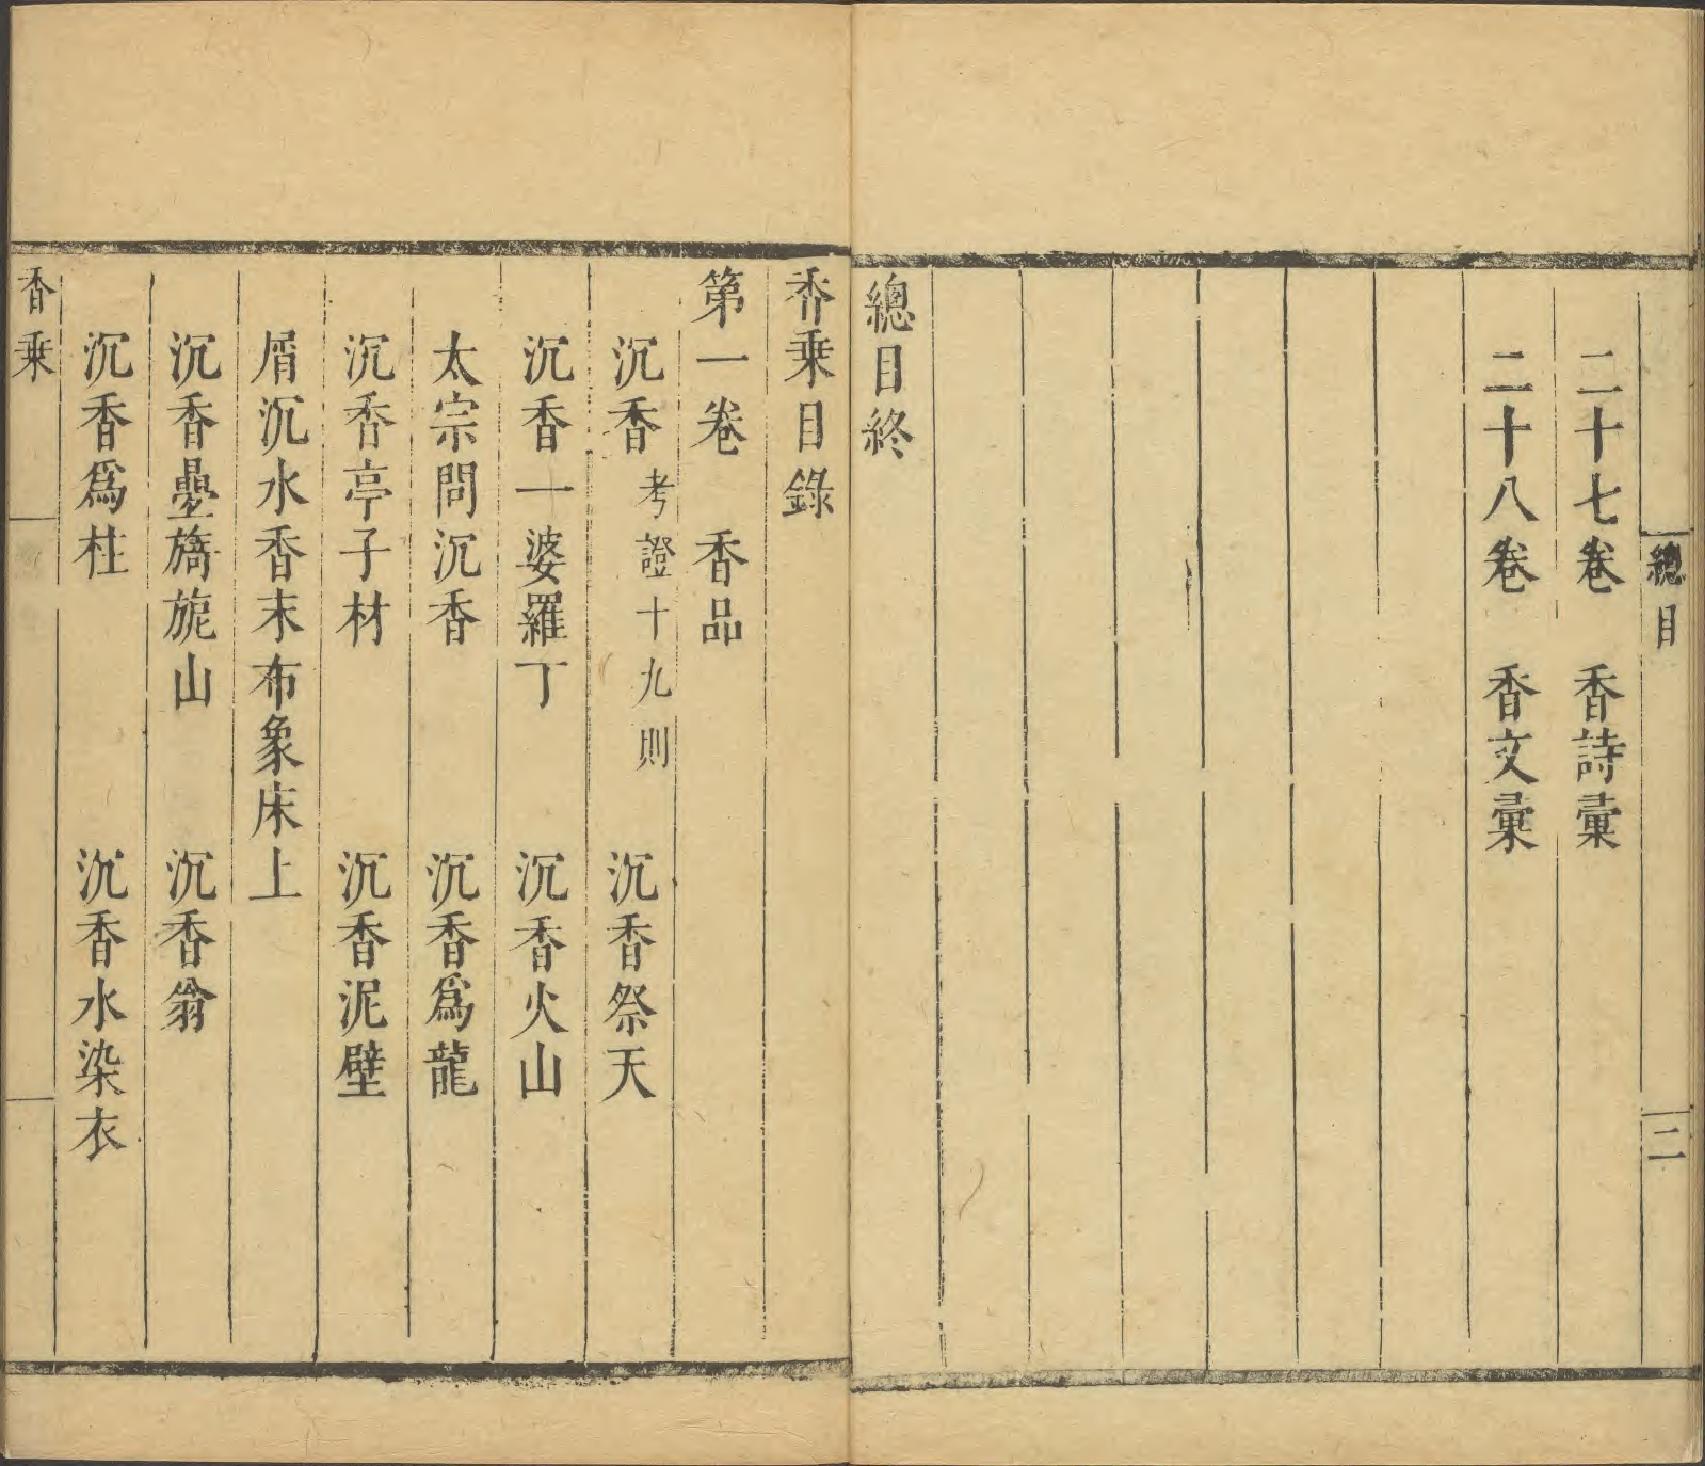 總目 二
二十七卷 香詩彙
二十八卷 香文彙
總目終
香乗目錄
第一卷 香品
沉香 考證十九則 沉香祭天
沉香一婆羅丁 沉香火山
太宗問沉香 沉香爲龍
沉香亭子材 沉香泥壁
屑沉水香末布象床上
沉香疊旖旎山 沉香翁
沉香爲柱 沉香水染衣
香乗